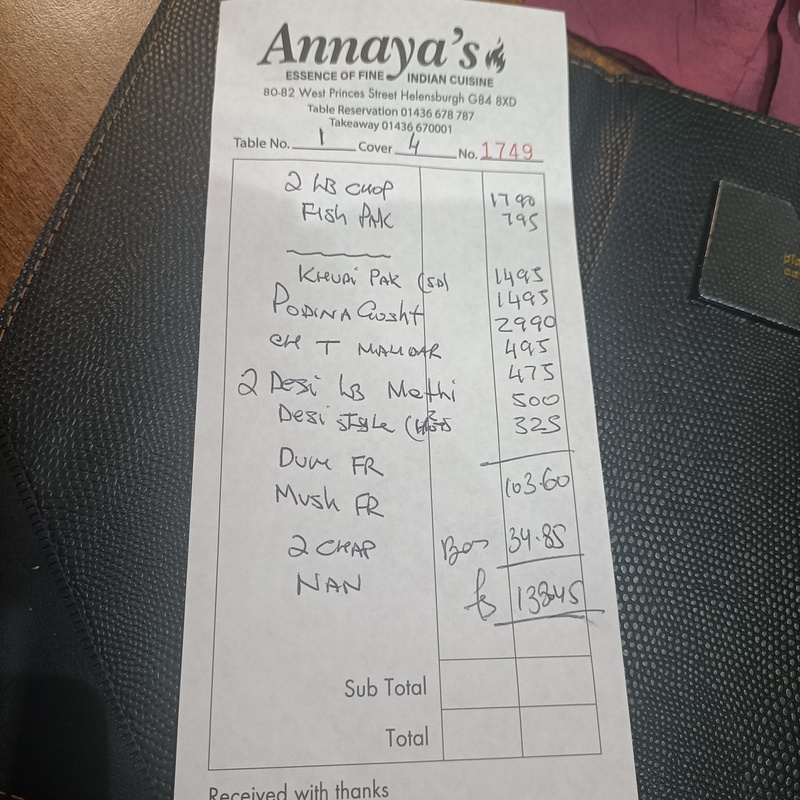 Annaya's
ESSENCE OF FINE INDIAN CUISINE
80-82 West Princes Street Helensburgh G84 8XD
Table Reservation 01436 678 787
Takeaway 01436 670001
Table No. 1 Cover 4 No. 1749
2 LB CHOP 1790
FISH PAK 795
KHUDI PAK (SD) 1495
PODINA Gosht 1495
CH T 2990
495
2 Desi LB Methi 475
Desi style 500
325
Dum FR
Mush FR 103.60
2 CHAP 34.85
NAN £ 138.45
Sub Total
Total
Received with thanks